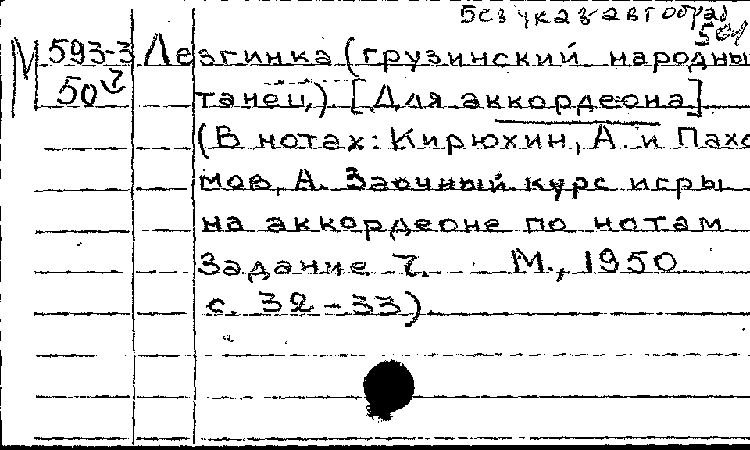 Без указ автообраб
50/
М 593-3 Лезгинка (грузинский народны
50 7 танец). [Для аккордеона]
(В нотах: Кирюхин, А. и Пахо
мов, А. Заочный курс игры
на аккордеоне по нотам
Задание 7. М., 1950
с. 32-33)